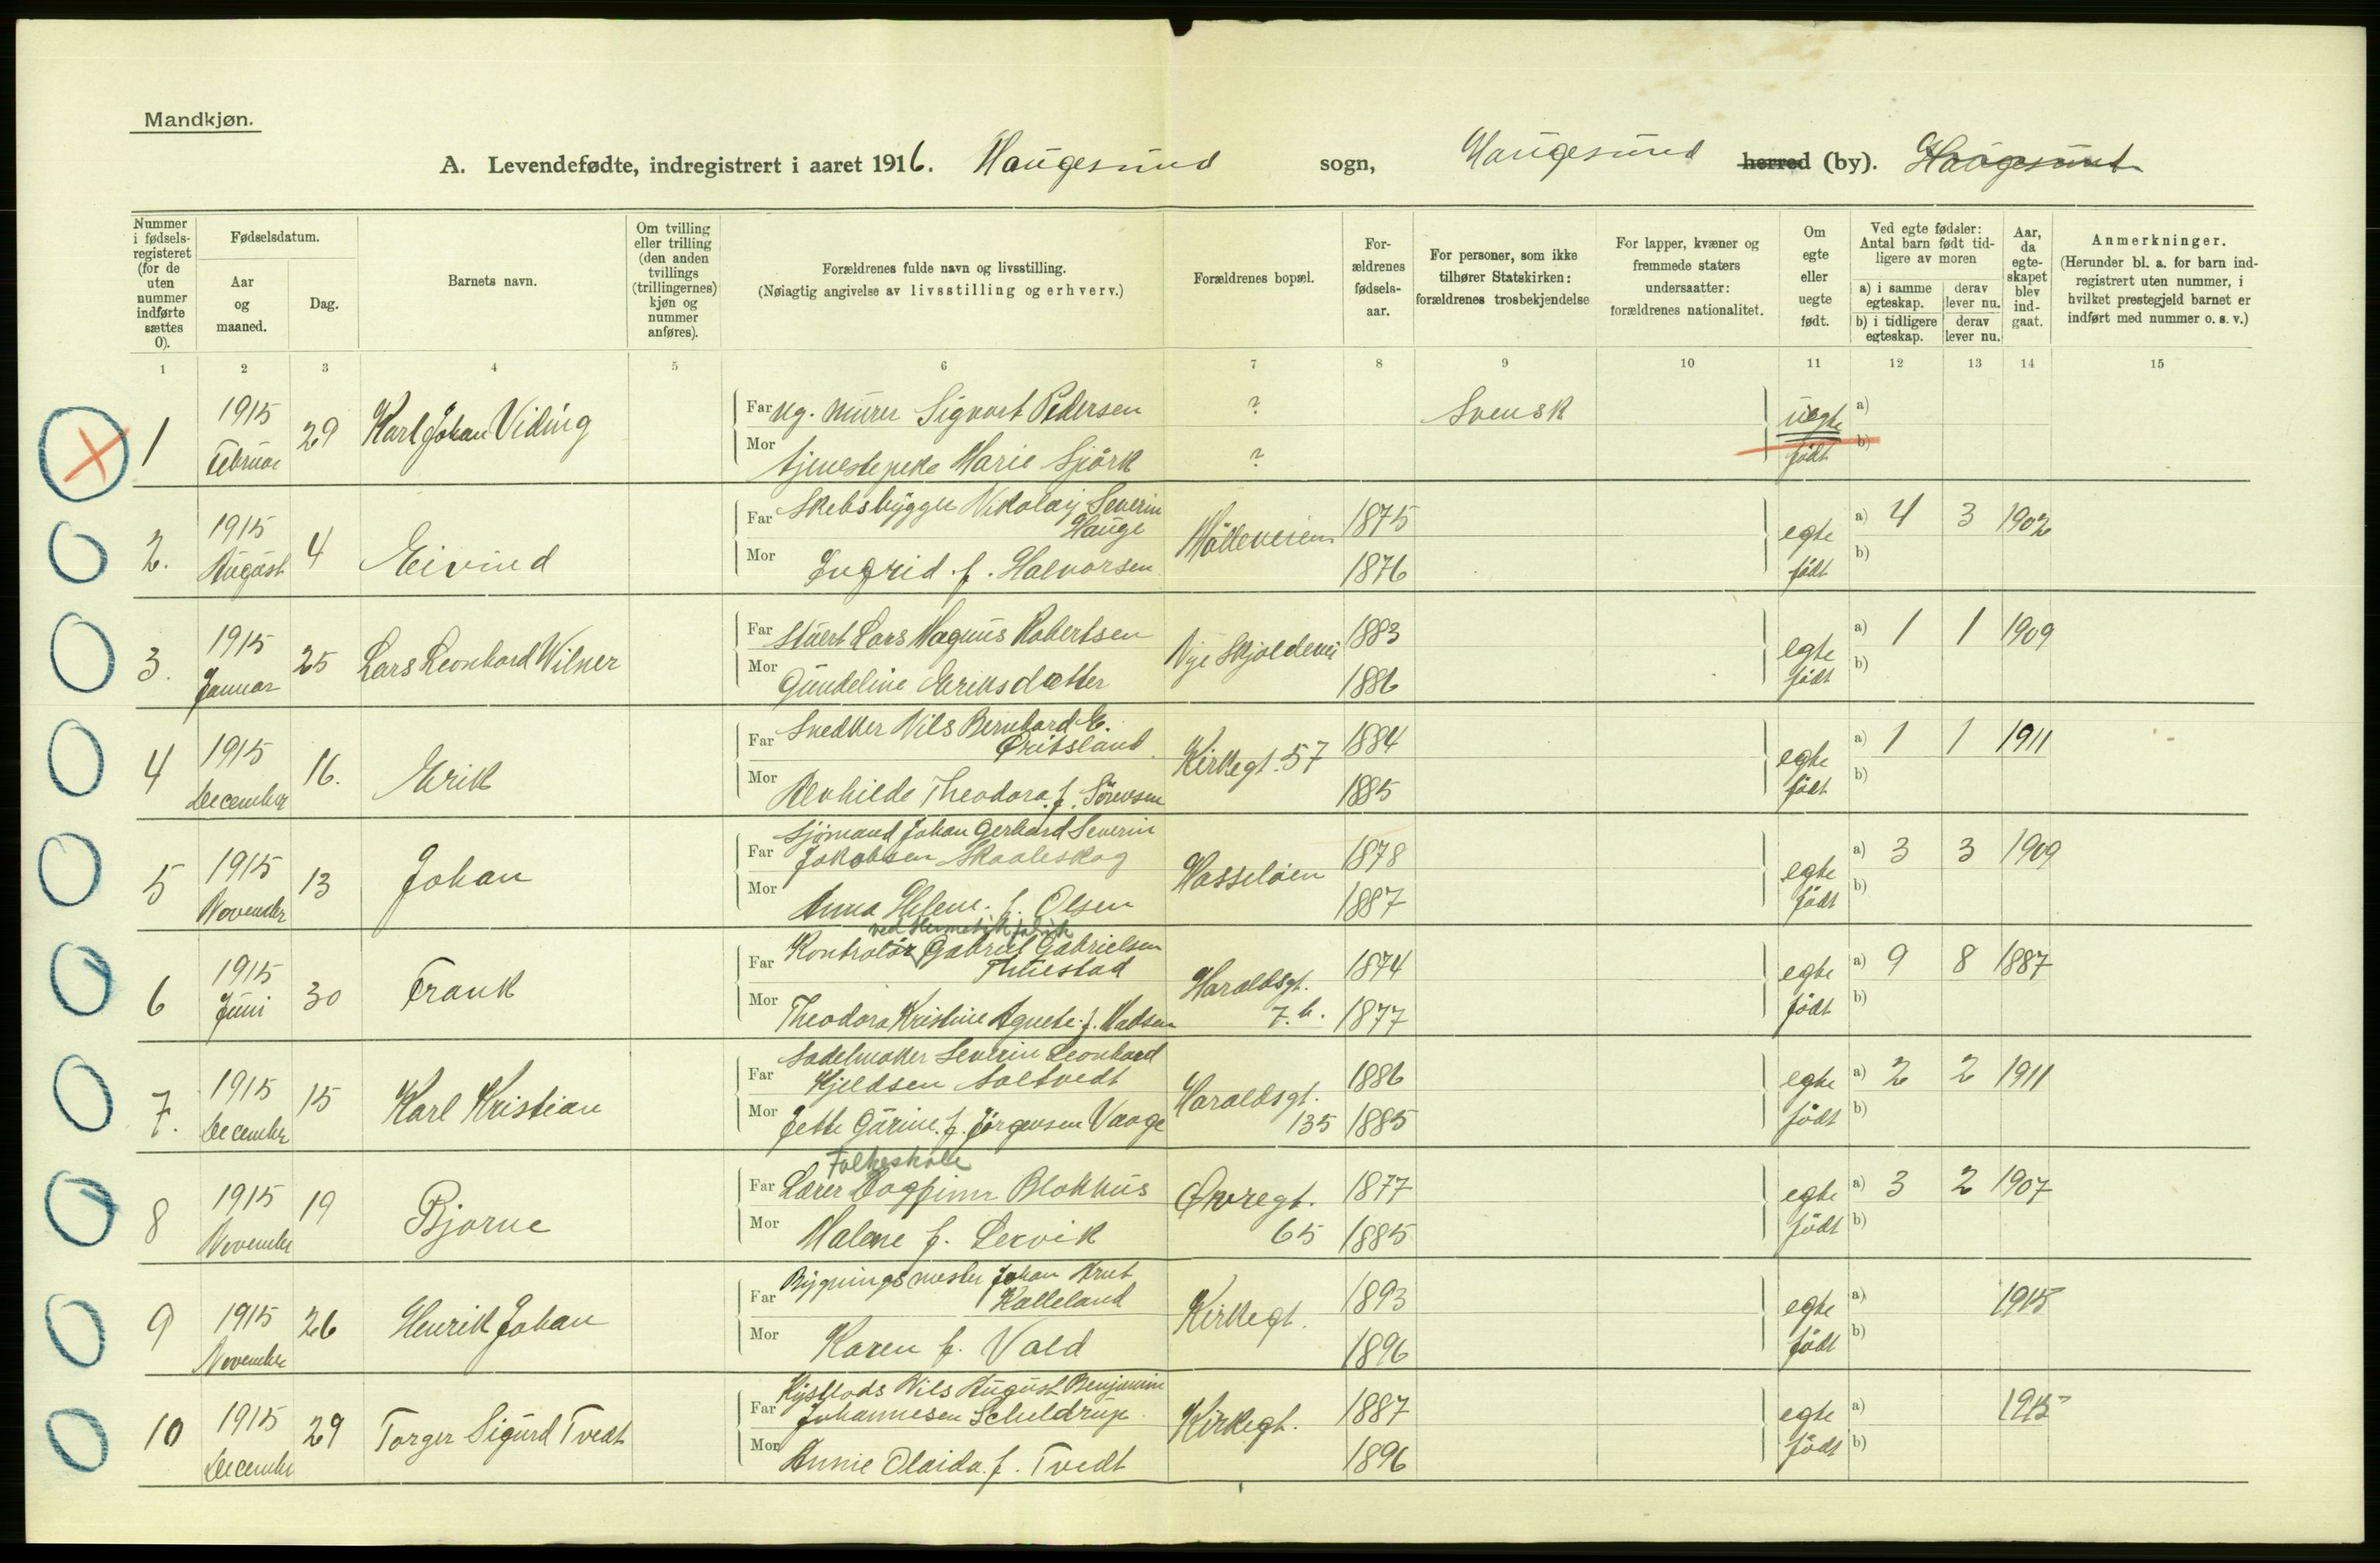 Mandkjøn.
A. Levendefødte, indregistrert i aaret 1916. Haugesund sogn, Haugesund herred (by). Haugesund
Nummer i fødsels-registeret (for de uten nummer indførte sættes 0).
Fødselsdatum.
Aar og maaned.
Dag.
Barnets navn.
Om tvilling eller trilling (den anden tvillings (trillingernes) kjøn og nummer anføres).
Forældrenes fulde navn og livsstilling.
(Nøiagtig angivelse av livsstilling og erhverv.)
Forældrenes bopæl.
For-ældrenes fødsels-aar.
For personer, som ikke tilhører Statskirken: forældrenes trosbekjendelse
For lapper, kvæner og fremmede staters undersaatter: forældrenes nationalitet.
Om egte eller uegte født.
Ved egte fødsler: Antal barn født tid-ligere av moren
a) i samme egteskap. derav lever nu.
b) i tidligere egteskap. derav lever nu.
Aar, da egte-skapet blev ind-gaat.
Anmerkninger.
(Herunder bl. a. for barn ind-registrert uten nummer, i hvilket prestegjeld barnet er indført med nummer o. s. v.)
1 2 3 4 5 6 7 8 9 10 11 12 13 14 15
1 1915 Februar 29 Karl Johan Viding
Far Ug. murer Sigvart Pedersen ? Svensk uegte a)
Mor tjenestepike Marie Sjörk ? født b)
2. 1915 August 4 Eivind
Far Skibsbygger Nikolay Severin Hauge Mölleveien 1875 egte a) 4 3 1902
Mor Ingrid f. Halvorsen 1876 født b)
3. 1915 Januar 25 Lars Leonhard Wilner
Far Stuert Lars Magnus Robertsen Nye Skjoldevei 1883 egte a) 1 1 1909
Mor Gundeline Eriksdatter 1886 født b)
4 1915 December 16. Erik
Far Snedker Nils Bernhard E. Øritsland Kirkegt. 57 1884 egte a) 1 1 1911
Mor Alvhilde Theodora f. Sörensen 1885 født b)
5 1915 November 13 Johan
Far Sjömand Johan Gerhard Severin Jakobsen Skaaleskog Hasseløen 1878 egte a) 3 3 1909
Mor Anna Helene f. Olsen 1887 født b)
6 1915 Juni 30 Frank
ved Hermetikfabrik
Far Kontrolör Gabriel Gabrielsen Thuestad Haraldsgt. 7.b. 1874 egte a) 9 8 1887
Mor Theodora Kristine Agnete f. Madsen 1877 født b)
7. 1915 December 15 Karl Kristian
Far Sadelmaker Severin Leonhard Kjeldsen Saltvedt Haraldsgt. 135 1886 egte a) 2 2 1911
Mor Jette Gurine f. Jörgensen Vaage 1885 født b)
8 1915 November 19 Bjarne
Folkeskole
Far Lærer Dagfinn Blokhus Øvregt. 65 1877 egte a) 3 2 1907
Mor Malene f. Lervik 1885 født b)
9 1915 November 26 Henrik Johan
Far Bygningsmester Johan Knut Kalleland Kirkegt. 1893 egte a) 1915
Mor Karen f. Vald 1896 født b)
10 1915 December 29 Torger Sigurd Tvedt
Far Kystlods Nils August Benjamin Johannesen Scheldrup Kirkegt. 1887 egte a) 1915
Mor Annie Olaida f. Tvedt 1896 født b)